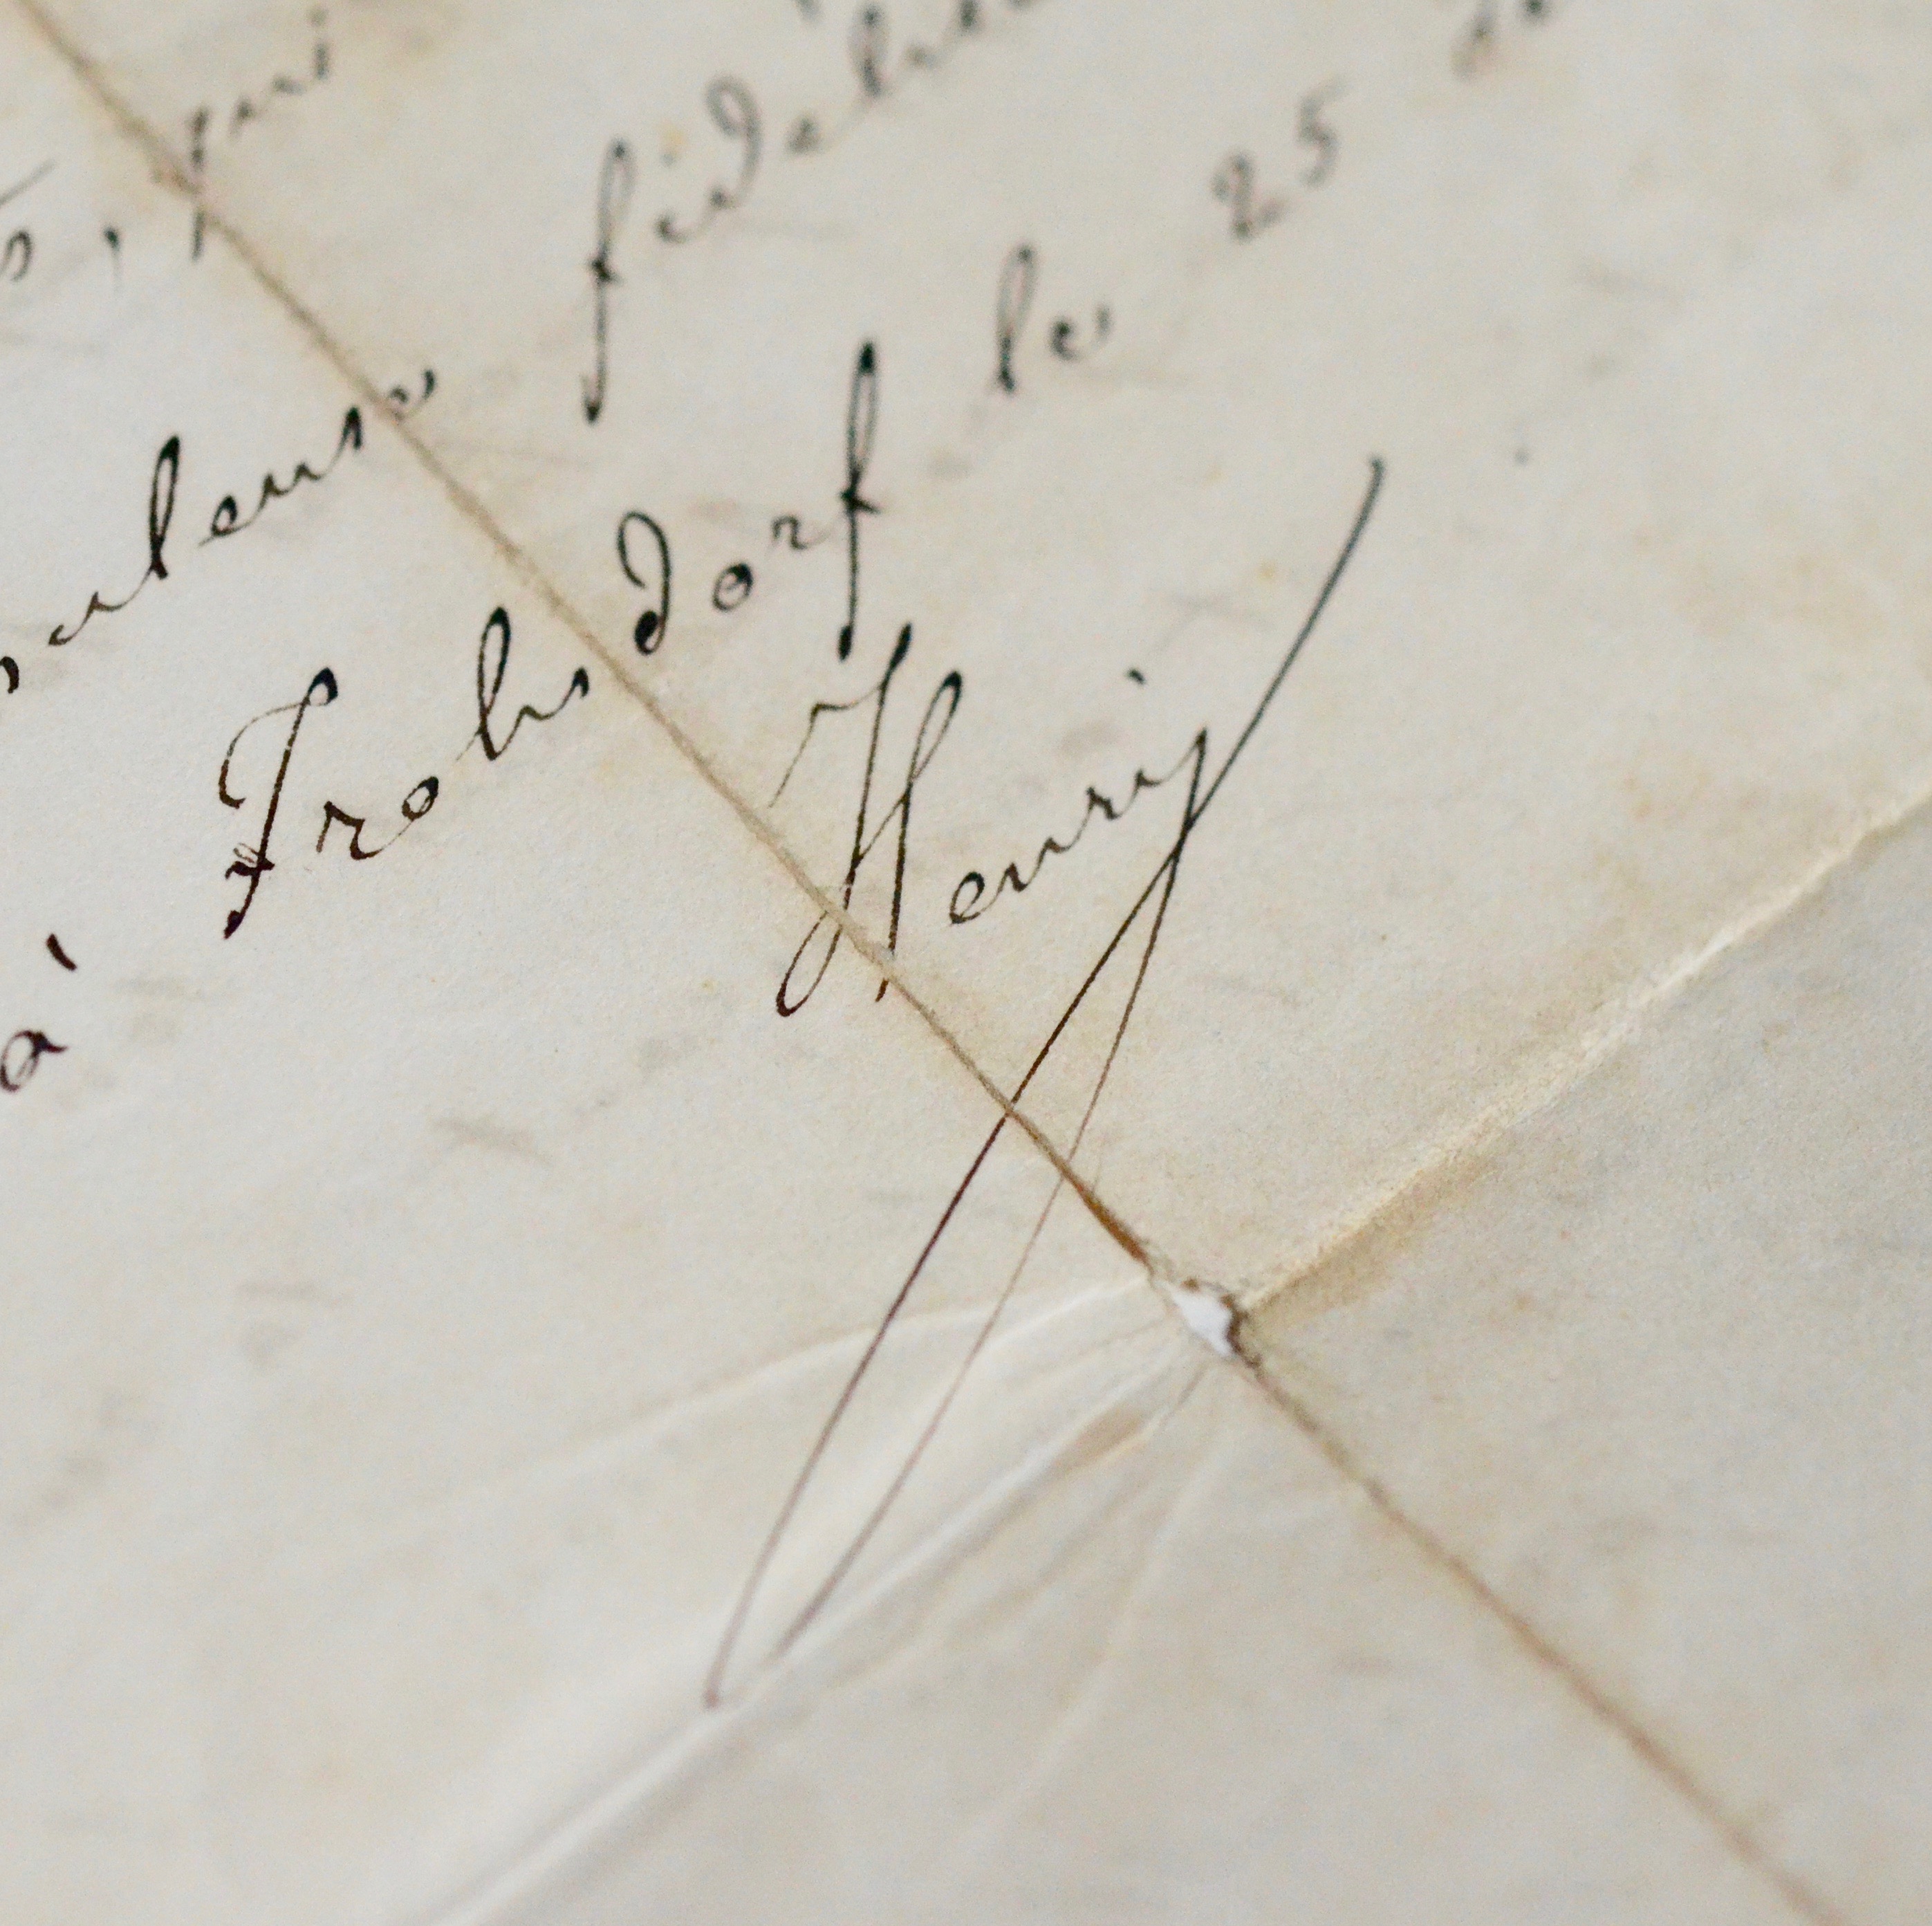 , qui
fidélité
à Frohsdorf le 25
Henri